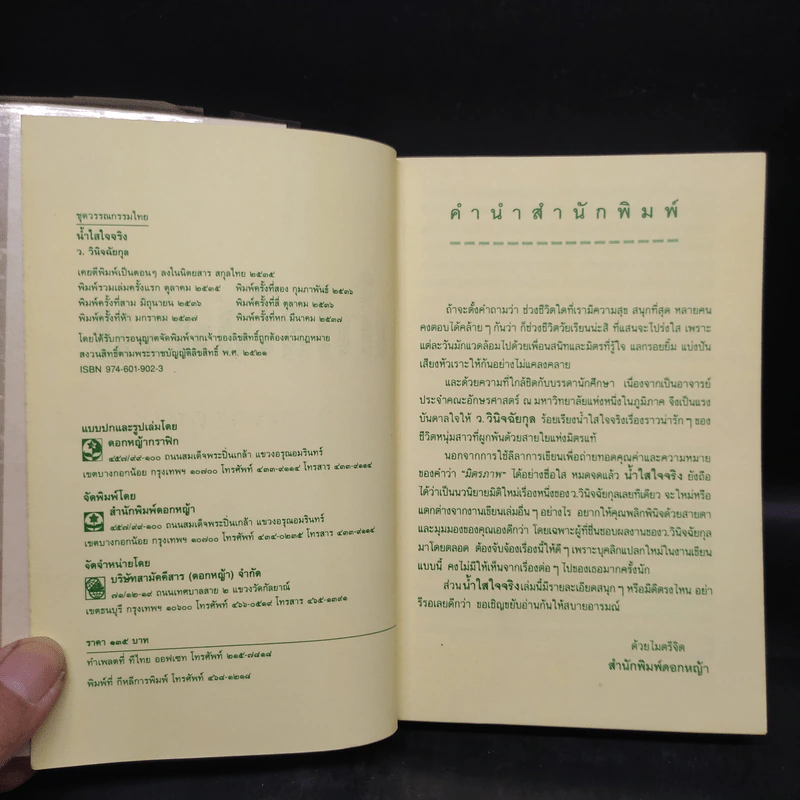 ชุดวรรณกรรมไทย
น้ำใสใจจริง
ว. วินิจฉัยกุล
เคยตีพิมพ์เป็นตอนๆ ลงในนิตยสาร สกุลไทย ๒๕๓๕
พิมพ์รวมเล่มครั้งแรก ตุลาคม ๒๕๓๕ พิมพ์ครั้งที่สอง กุมภาพันธ์ ๒๕๓๖
พิมพ์ครั้งที่สาม มิถุนายน ๒๕๓๖ พิมพ์ครั้งที่สี่ ตุลาคม ๒๕๓๖
พิมพ์ครั้งที่ห้า มกราคม ๒๕๓๗ พิมพ์ครั้งที่หก มีนาคม ๒๕๓๗
โดยได้รับการอนุญาตจัดพิมพ์จากเจ้าของลิขสิทธิ์ถูกต้องตามกฎหมาย
สงวนสิทธิ์ตามพระราชบัญญัติลิขสิทธิ์ พ.ศ. ๒๕๒๑
ISBN 974-601-902-3
แบบปกและรูปเล่มโดย
ดอกหญ้ากราฟิก
๔๕๗/๙๙-๑๐๐ ถนนสมเด็จพระปิ่นเกล้า แขวงอรุณอมรินทร์
เขตบางกอกน้อย กรุงเทพฯ ๑๐๗๐๐ โทรศัพท์ ๔๓๓-๙๑๑๔ โทรสาร ๔๓๓-๙๑๑๔
จัดพิมพ์โดย
สำนักพิมพ์ดอกหญ้า
๔๕๗/๙๙-๑๐๐ ถนนสมเด็จพระปิ่นเกล้า แขวงอรุณอมรินทร์
เขตบางกอกน้อย กรุงเทพฯ ๑๐๗๐๐ โทรศัพท์ ๔๓๔-๐๒๓๕ โทรสาร ๔๓๓-๙๑๑๔
จัดจำหน่ายโดย
บริษัทสามัคคีสาร (ดอกหญ้า) จำกัด
๗๑/๑๒-๑๙ ถนนเทศบาลสาย ๒ แขวงวัดกัลยาณ์
เขตธนบุรี กรุงเทพฯ ๑๐๖๐๐ โทรศัพท์ ๔๖๖-๐๕๑๙ โทรสาร ๔๖๕-๑๓๙๑
ราคา ๑๓๕ บาท
ทำเพลตที่ ทีไทย ออฟเซท โทรศัพท์ ๒๑๕-๗๘๑๘
พิมพ์ที่ กีหลีการพิมพ์ โทรศัพท์ ๔๖๘-๑๒๑๘
คำนำสำนักพิมพ์
ถ้าจะตั้งคำถามว่า ช่วงชีวิตใดที่เรามีความสุข สนุกที่สุด หลายคน
คงตอบได้คล้ายๆ กันว่า ก็ช่วงชีวิตวัยเรียนน่ะสิ ที่แสนจะโปร่งใส เพราะ
แต่ละวันมักแวดล้อมไปด้วยเพื่อนสนิทและมิตรที่รู้ใจ แลกรอยยิ้ม แบ่งปัน
เสียงหัวเราะให้กันอย่างไม่แคลงคลาย
และด้วยความที่ใกล้ชิดกับบรรดานักศึกษา เนื่องจากเป็นอาจารย์
ประจำคณะอักษรศาสตร์ ณ มหาวิทยาลัยแห่งหนึ่งในภูมิภาค จึงเป็นแรง
บันดาลใจให้ ว.วินิจฉัยกุล ร้อยเรียงน้ำใสใจจริงเรื่องราวน่ารักๆ ของ
ชีวิตหนุ่มสาวที่ผูกพันด้วยสายใยแห่งมิตรแท้
นอกจากการใช้ลีลาการเขียนเพื่อถ่ายทอดคุณค่าและความหมาย
ของคำว่า "มิตรภาพ" ได้อย่างซื่อใส หมดจดแล้ว น้ำใสใจจริง ยังถือ
ได้ว่าเป็นนวนิยายมิติใหม่เรื่องหนึ่งของ ว.วินิจฉัยกุลเลยทีเดียว จะใหม่หรือ
แตกต่างจากงานเขียนเล่มอื่นๆ อย่างไร อยากให้คุณพลิกพินิจด้วยสายตา
และมุมมองของคุณเองดีกว่า โดยเฉพาะผู้ที่ชื่นชอบผลงานของว.วินิจฉัยกุล
มาโดยตลอด ต้องจับจ้องเรื่องนี้ให้ดีๆ เพราะบุคลิกแปลกใหม่ในงานเขียน
แบบนี้ คงไม่มีให้เห็นจากเรื่องต่อๆ ไปของเธอมากครั้งนัก
ส่วนน้ำใสใจจริงเล่มนี้มีรายละเอียดสนุกๆ หรือมิติตรงไหน อย่า
รีรอเลยดีกว่า ขอเชิญขยับอ่านกันให้สบายอารมณ์
ด้วยไมตรีจิต
สำนักพิมพ์ดอกหญ้า